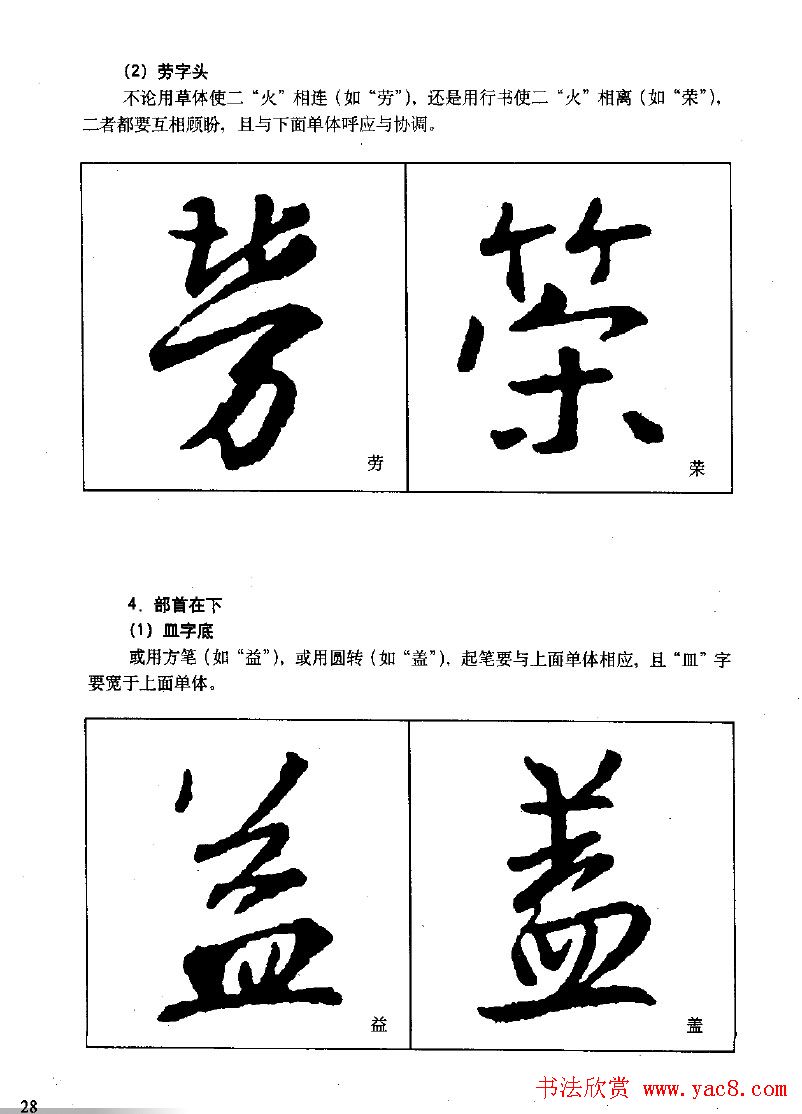 (2) 劳字头
不论用草体使二“火”相连(如“劳”),还是用行书使二“火”相离(如“荣”),
二者都要互相顾盼,且与下面单体呼应与协调。
劳
荣
4. 部首在下
(1) 皿字底
或用方笔(如“益”),或用圆转(如“盖”),起笔要与上面单体相应,且“皿”字
要宽于上面单体。
益
盖
28
书法欣赏 www.yac8.com